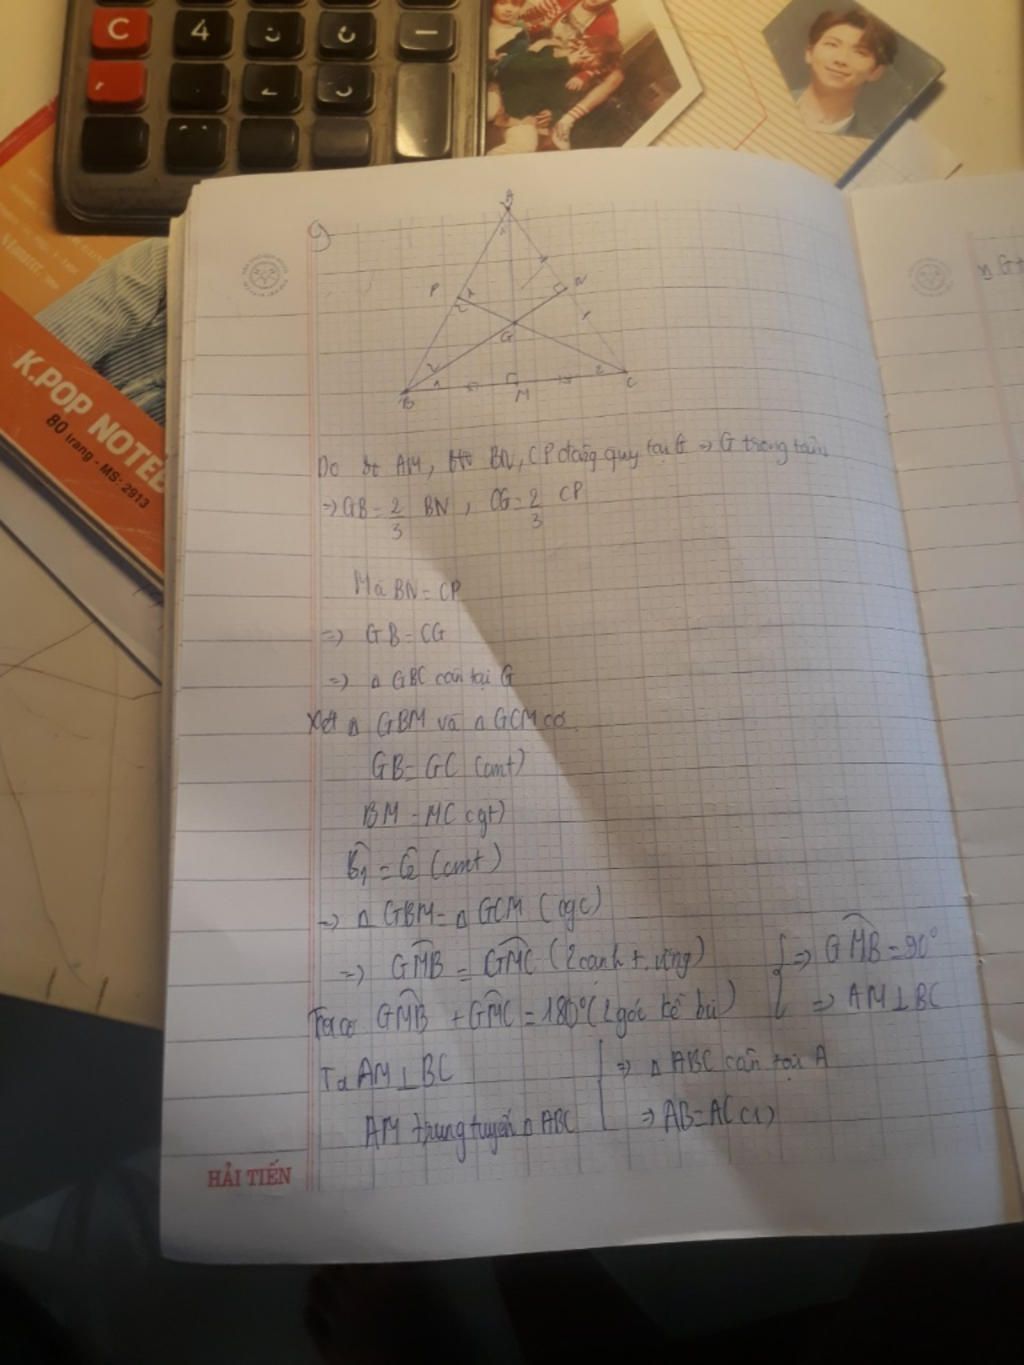 C 4 −
K.POP NOTEB
80 trang - MS: 2913
9
A
P N
G
B M C
Do AM, BN, CP đồng quy tại G => G trọng tâm
=> GB = 2/3 BN, CG = 2/3 CP
Mà BN = CP
=> GB = CG
=> △ GBC cân tại G
Xét △ GBM và △ GCM có
GB = GC (cmt)
BM = MC (gt)
B̂1 = Ĉ2 (cmt)
=> △ GBM = △ GCM (cgc)
=> GM̂B = GM̂C (2 cạnh t. ứng) => GM̂B = 90°
Ta có GM̂B + GM̂C = 180° (2 góc kề bù) => AM ⊥ BC
Ta AM ⊥ BC => △ ABC cân tại A
AM trung tuyến △ ABC => AB = AC (1)
HẢI TIẾN